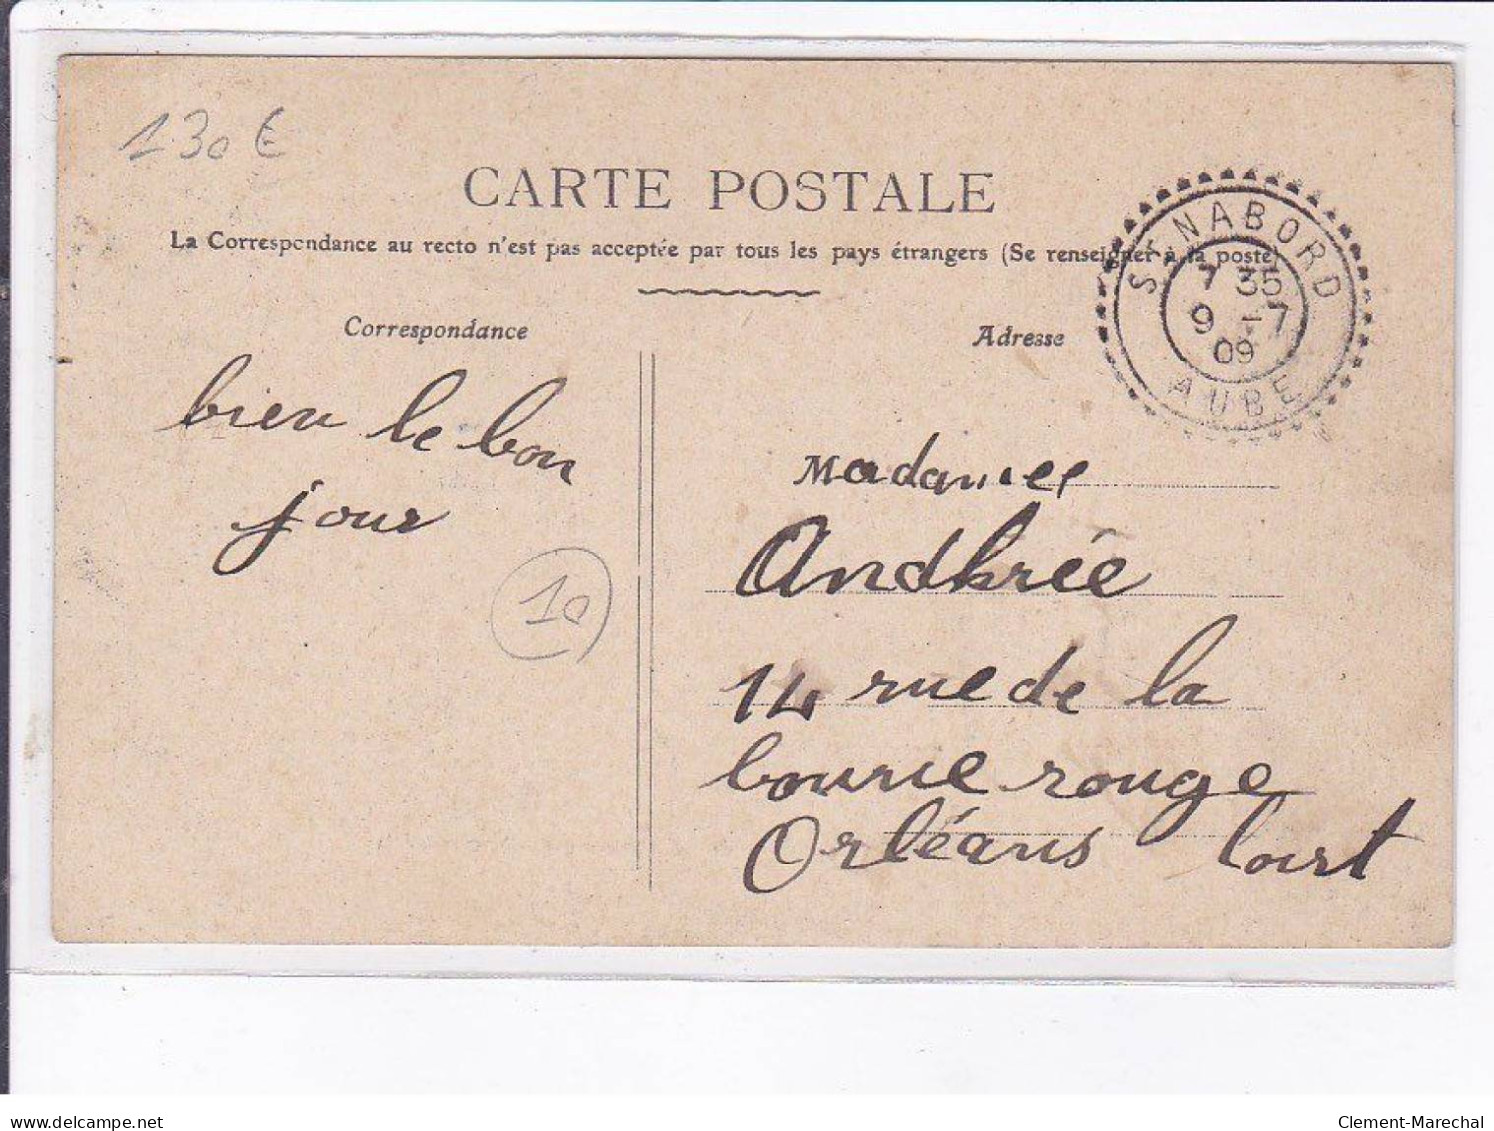 130€
CARTE POSTALE
La Correspondance au recto n'est pas acceptée par tous les pays étrangers (Se renseigner à la poste)
Correspondance
Adresse
ST NABORD
7 35
9 -7
09
AUBE
bien le bon
jour
10
Andhrée
14 rue de la
bourie rouge
Orléans Loirt
delcampe.net
Clement-Marechal